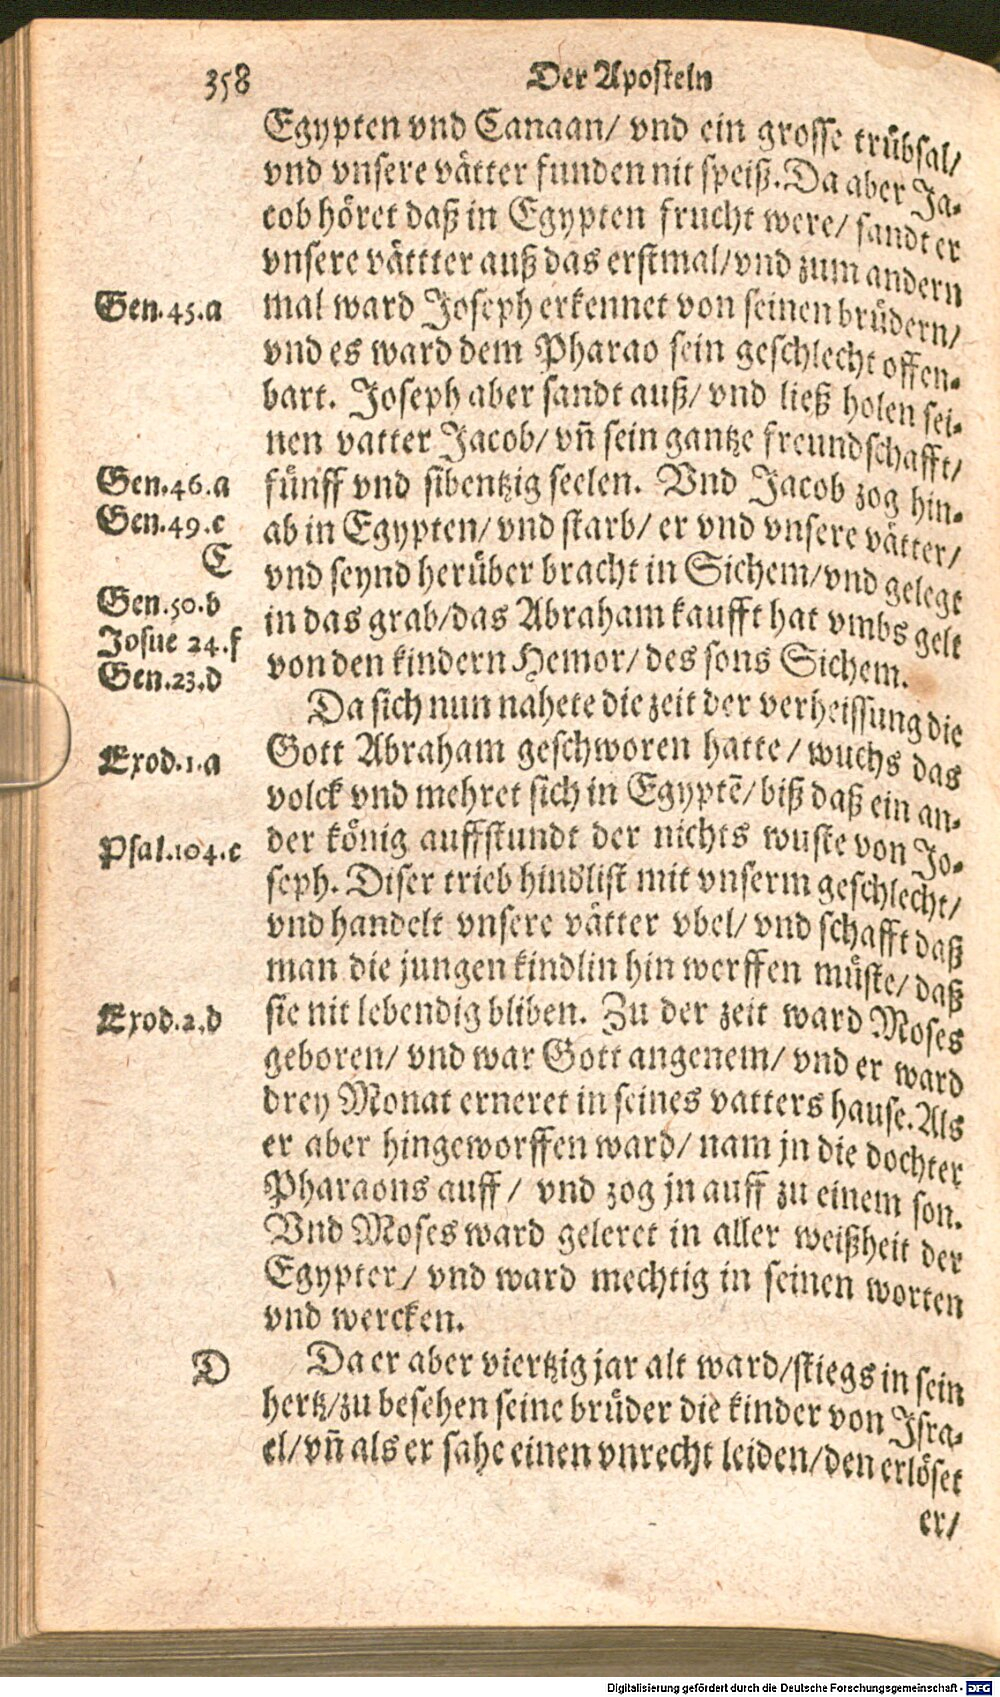 358
Der Aposteln
Egypten vnd Canaan/ vnd ein grosse trůbsal/
vnd vnsere vätter funden nit speiß. Da aber Ja-
cob höret daß in Egypten frucht were/ sandt er
vnsere vättter auß das erstmal/ vnd zum andern
Gen.45.a
mal ward Joseph erkennet von seinen brüdern/
vnd es ward dem Pharao sein geschlecht offen-
bart. Joseph aber sandt auß/ vnd ließ holen sei-
nen vatter Jacob/ vñ sein gantze freundschafft/
Gen.46.a
fünff vnd sibentzig seelen. Vnd Jacob zog hin-
Gen.49.c
ab in Egypten/ vnd starb/ er vnd vnsere vätter/
C
vnd seynd herüber bracht in Sichem/ vnd gelegt
Gen.50.b
in das grab/ das Abraham kaufft hat vmbs gelt
Josue 24.f
von den kindern Hemor/ des sons Sichem.
Gen.23.d
Da sich nun nahete die zeit der verheissung die
Exod.1.a
Gott Abraham geschworen hatte/ wuchs das
volck vnd mehret sich in Egyptē/ biß daß ein an-
der könig auffstundt der nichts wuste von Jo-
Psal.104.c
seph. Diser trieb hindlist mit vnserm geschlecht/
vnd handelt vnsere vätter vbel/ vnd schafft daß
man die jungen kindlin hin werffen müste/ daß
Exod.2.d
sie nit lebendig bliben. Zu der zeit ward Moses
geboren/ vnd war Gott angenem/ vnd er ward
drey Monat erneret in seines vatters hause. Als
er aber hingeworffen ward/ nam jn die dochter
Pharaons auff/ vnd zog jn auff zu einem son.
Vnd Moses ward geleret in aller weißheit der
Egypter/ vnd ward mechtig in seinen worten
vnd wercken.
D
Da er aber viertzig jar alt ward/ stiegs in sein
hertz/ zu besehen seine brüder die kinder von Isra-
el/ vñ als er sahe einen vnrecht leiden/ den erlöset
er/
Digitalisierung gefördert durch die Deutsche Forschungsgemeinschaft - DFG